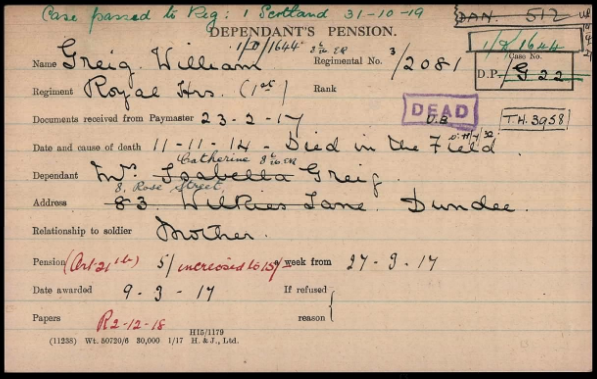 Case passed to Reg: 1 Scotland 31-10-19
DAN. 512
DEPENDANT'S PENSION.
1/D/1644
1/D/1644
Case No.
D.P. G 22
Name Greig William Regimental No. 3/2081
Regiment Royal Hrs. (1st) Rank
DEAD
T.H.3958
Documents received from Paymaster 23-2-17
Date and cause of death 11-11-14 - Died in the Field
Catherine
Dependant Mrs Isabella Greig.
8, Rose Street,
Address 83 Wilkies Lane Dundee.
Relationship to soldier Mother.
Pension (Art 21 1b) 5/ increased to 15/- a week from 27-3-17
Date awarded 9-3-17 If refused
Papers R2-12-18 reason
H15/1179
(11238) Wt. 50720/6 30,000 1/17 H. & J., Ltd.